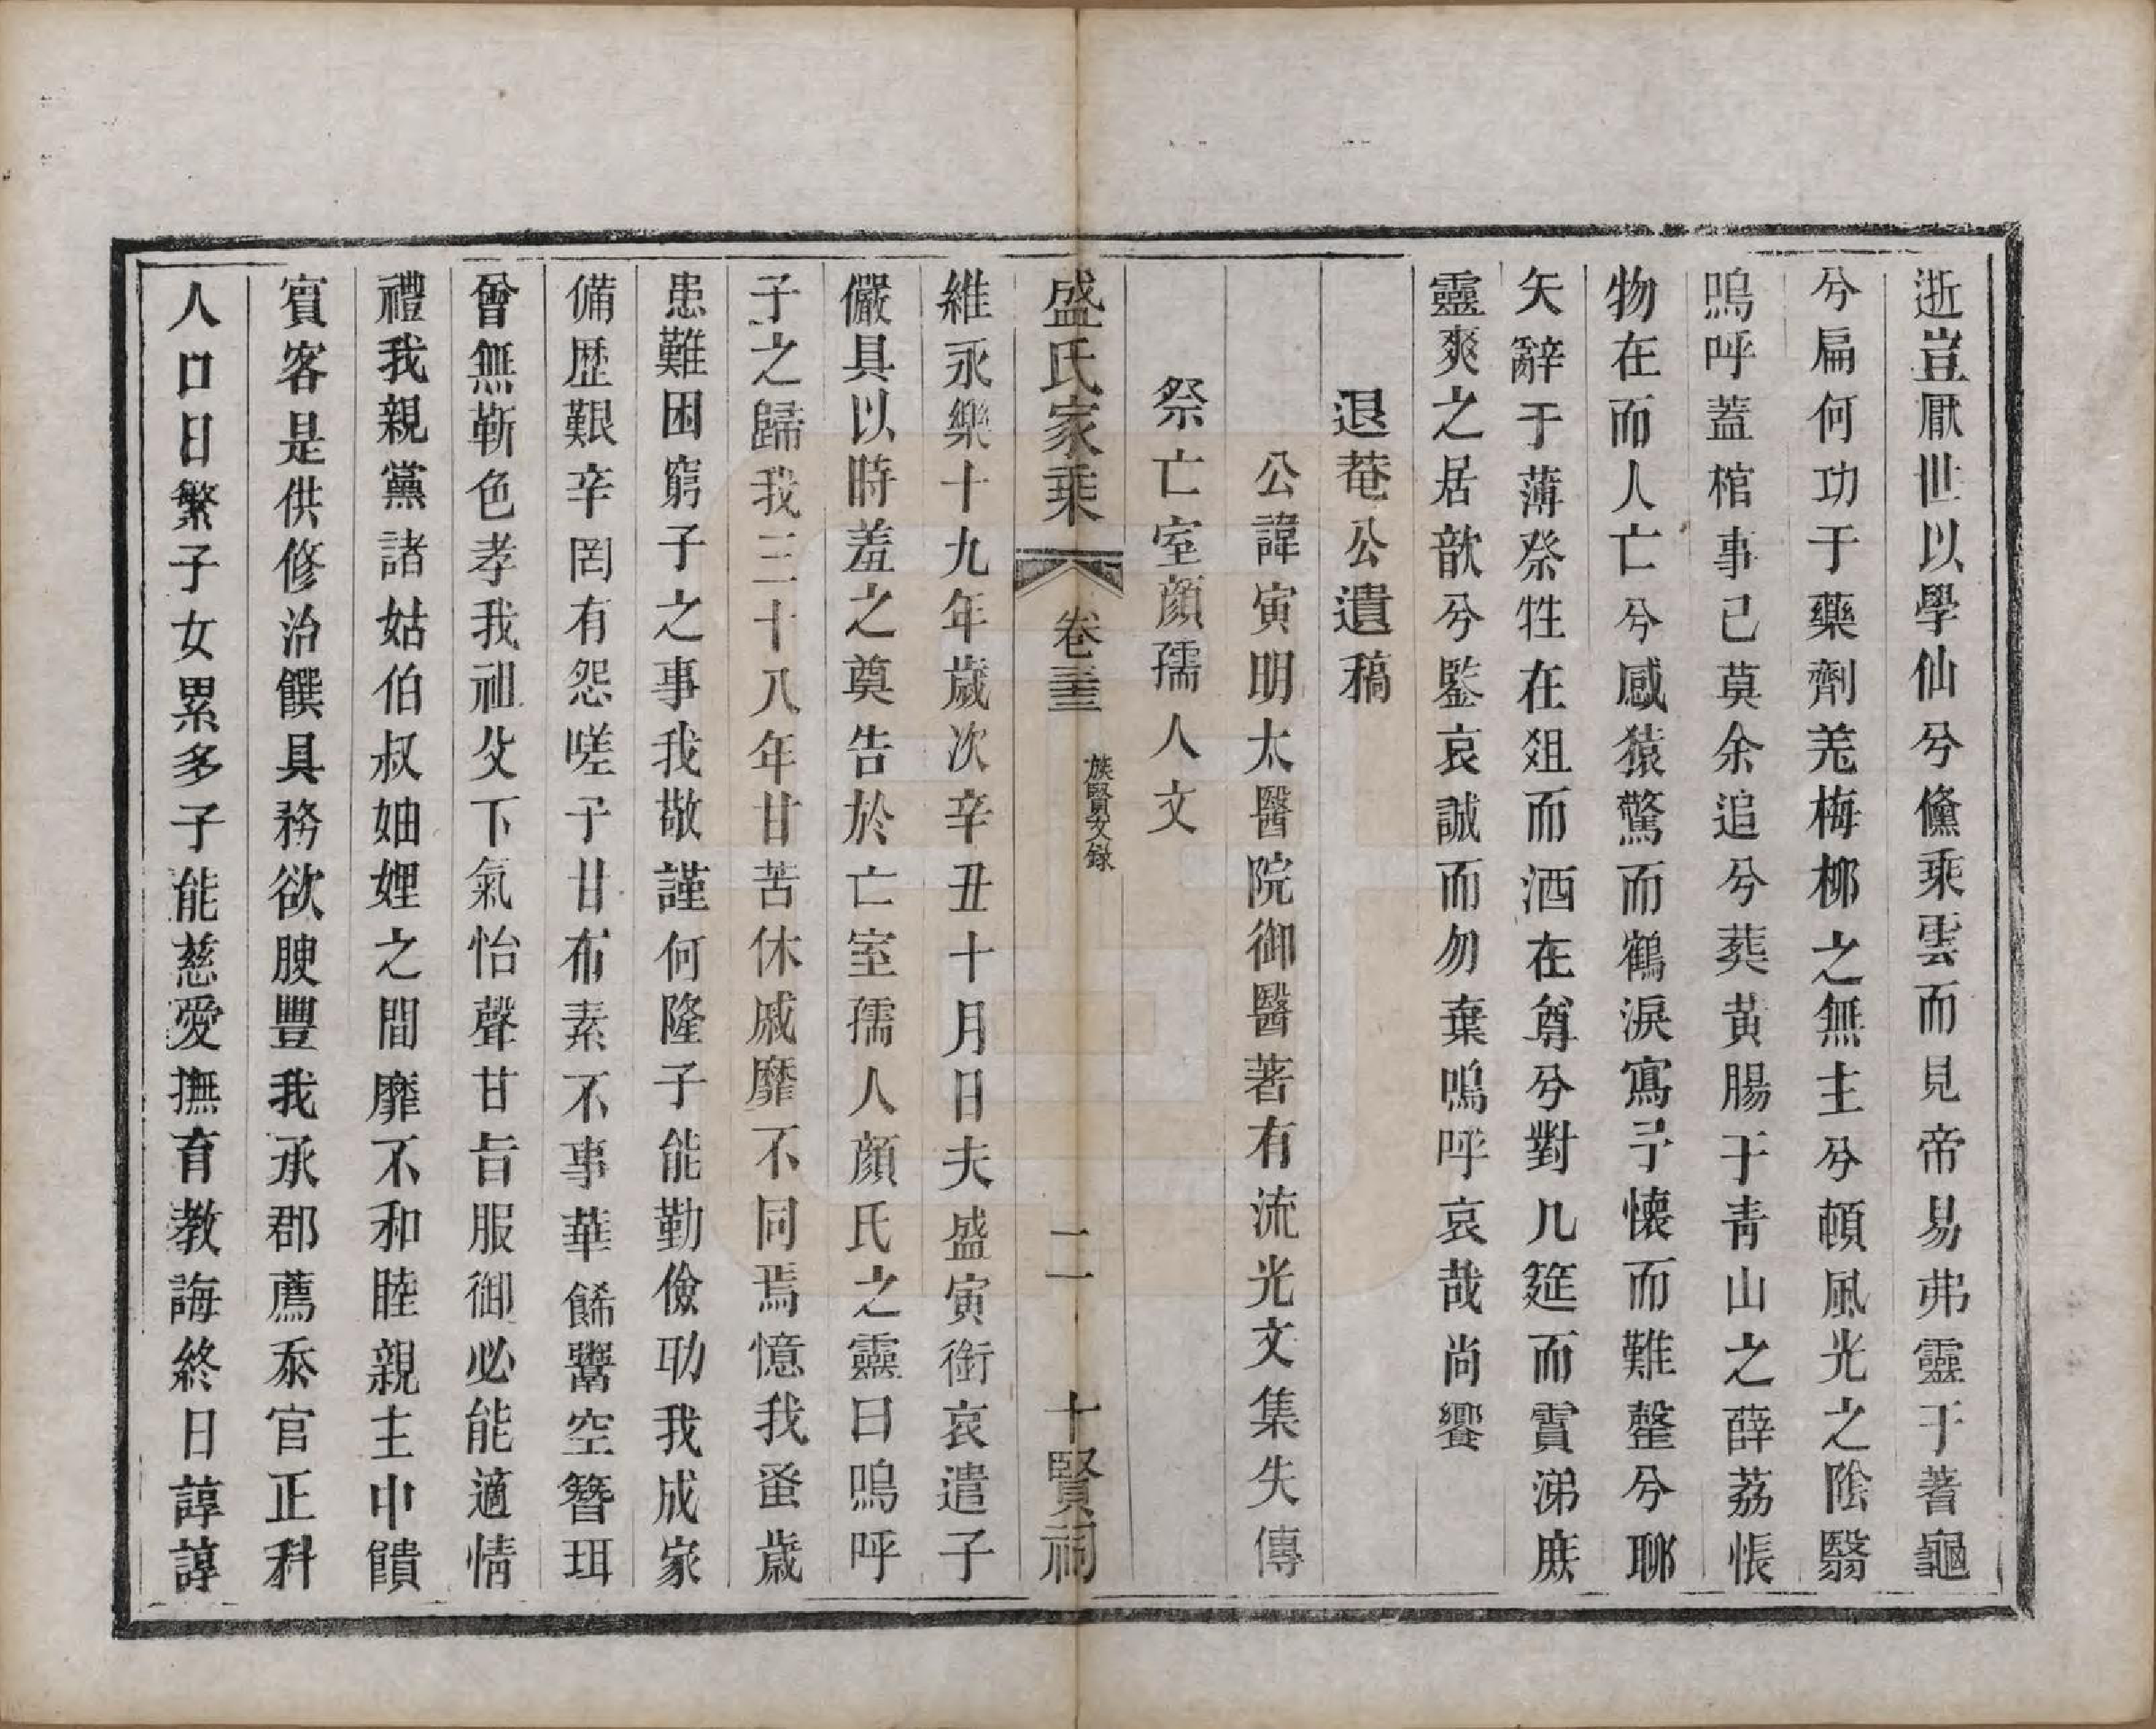 逝豈厭世以學仙兮儵乘雲而見帝易弗靈于著龜
兮扁何功于藥劑羌梅柳之無主兮頓風光之陰翳
嗚呼蓋棺事已莫余追兮葬黃腸于青山之薜荔悵
物在而人亡兮感猿驚而鶴淚寫予懷而難罄兮聊
矢辭于薄祭牲在俎而酒在尊兮對几筵而霣涕庶
靈爽之居歆兮鑒哀誠而勿棄嗚呼哀哉尚饗
退菴公遺稿
公諱寅明太醫院御醫著有流光文集失傳
祭亡室顏孺人文
盛氏家乘 卷三十三 族賢文錄 二一 十賢祠
維永樂十九年歲次辛丑十月日夫盛寅銜哀遣子
儼具以時羞之奠告於亡室孺人顏氏之靈曰嗚呼
子之歸我三十八年甘苦休戚靡不同焉憶我蚤歲
患難困窮子之事我敬謹何隆子能勤儉劢我成家
備歷艱辛罔有怨嗟予甘布素不事華餙鬻空簪珥
曾無靳色孝我祖父下氣怡聲甘旨服御必能適情
禮我親黨諸姑伯叔妯娌之間靡不和睦親主中饋
賓客是供修治饌具務欲腴豐我承郡薦忝官正科
人口日繁子女累多子能慈愛撫育教誨終日諄諄